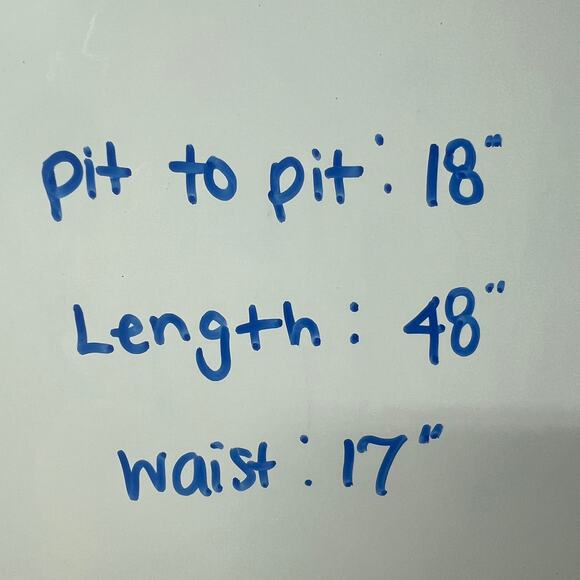 pit to pit: 18"
Length: 48"
Waist: 17"